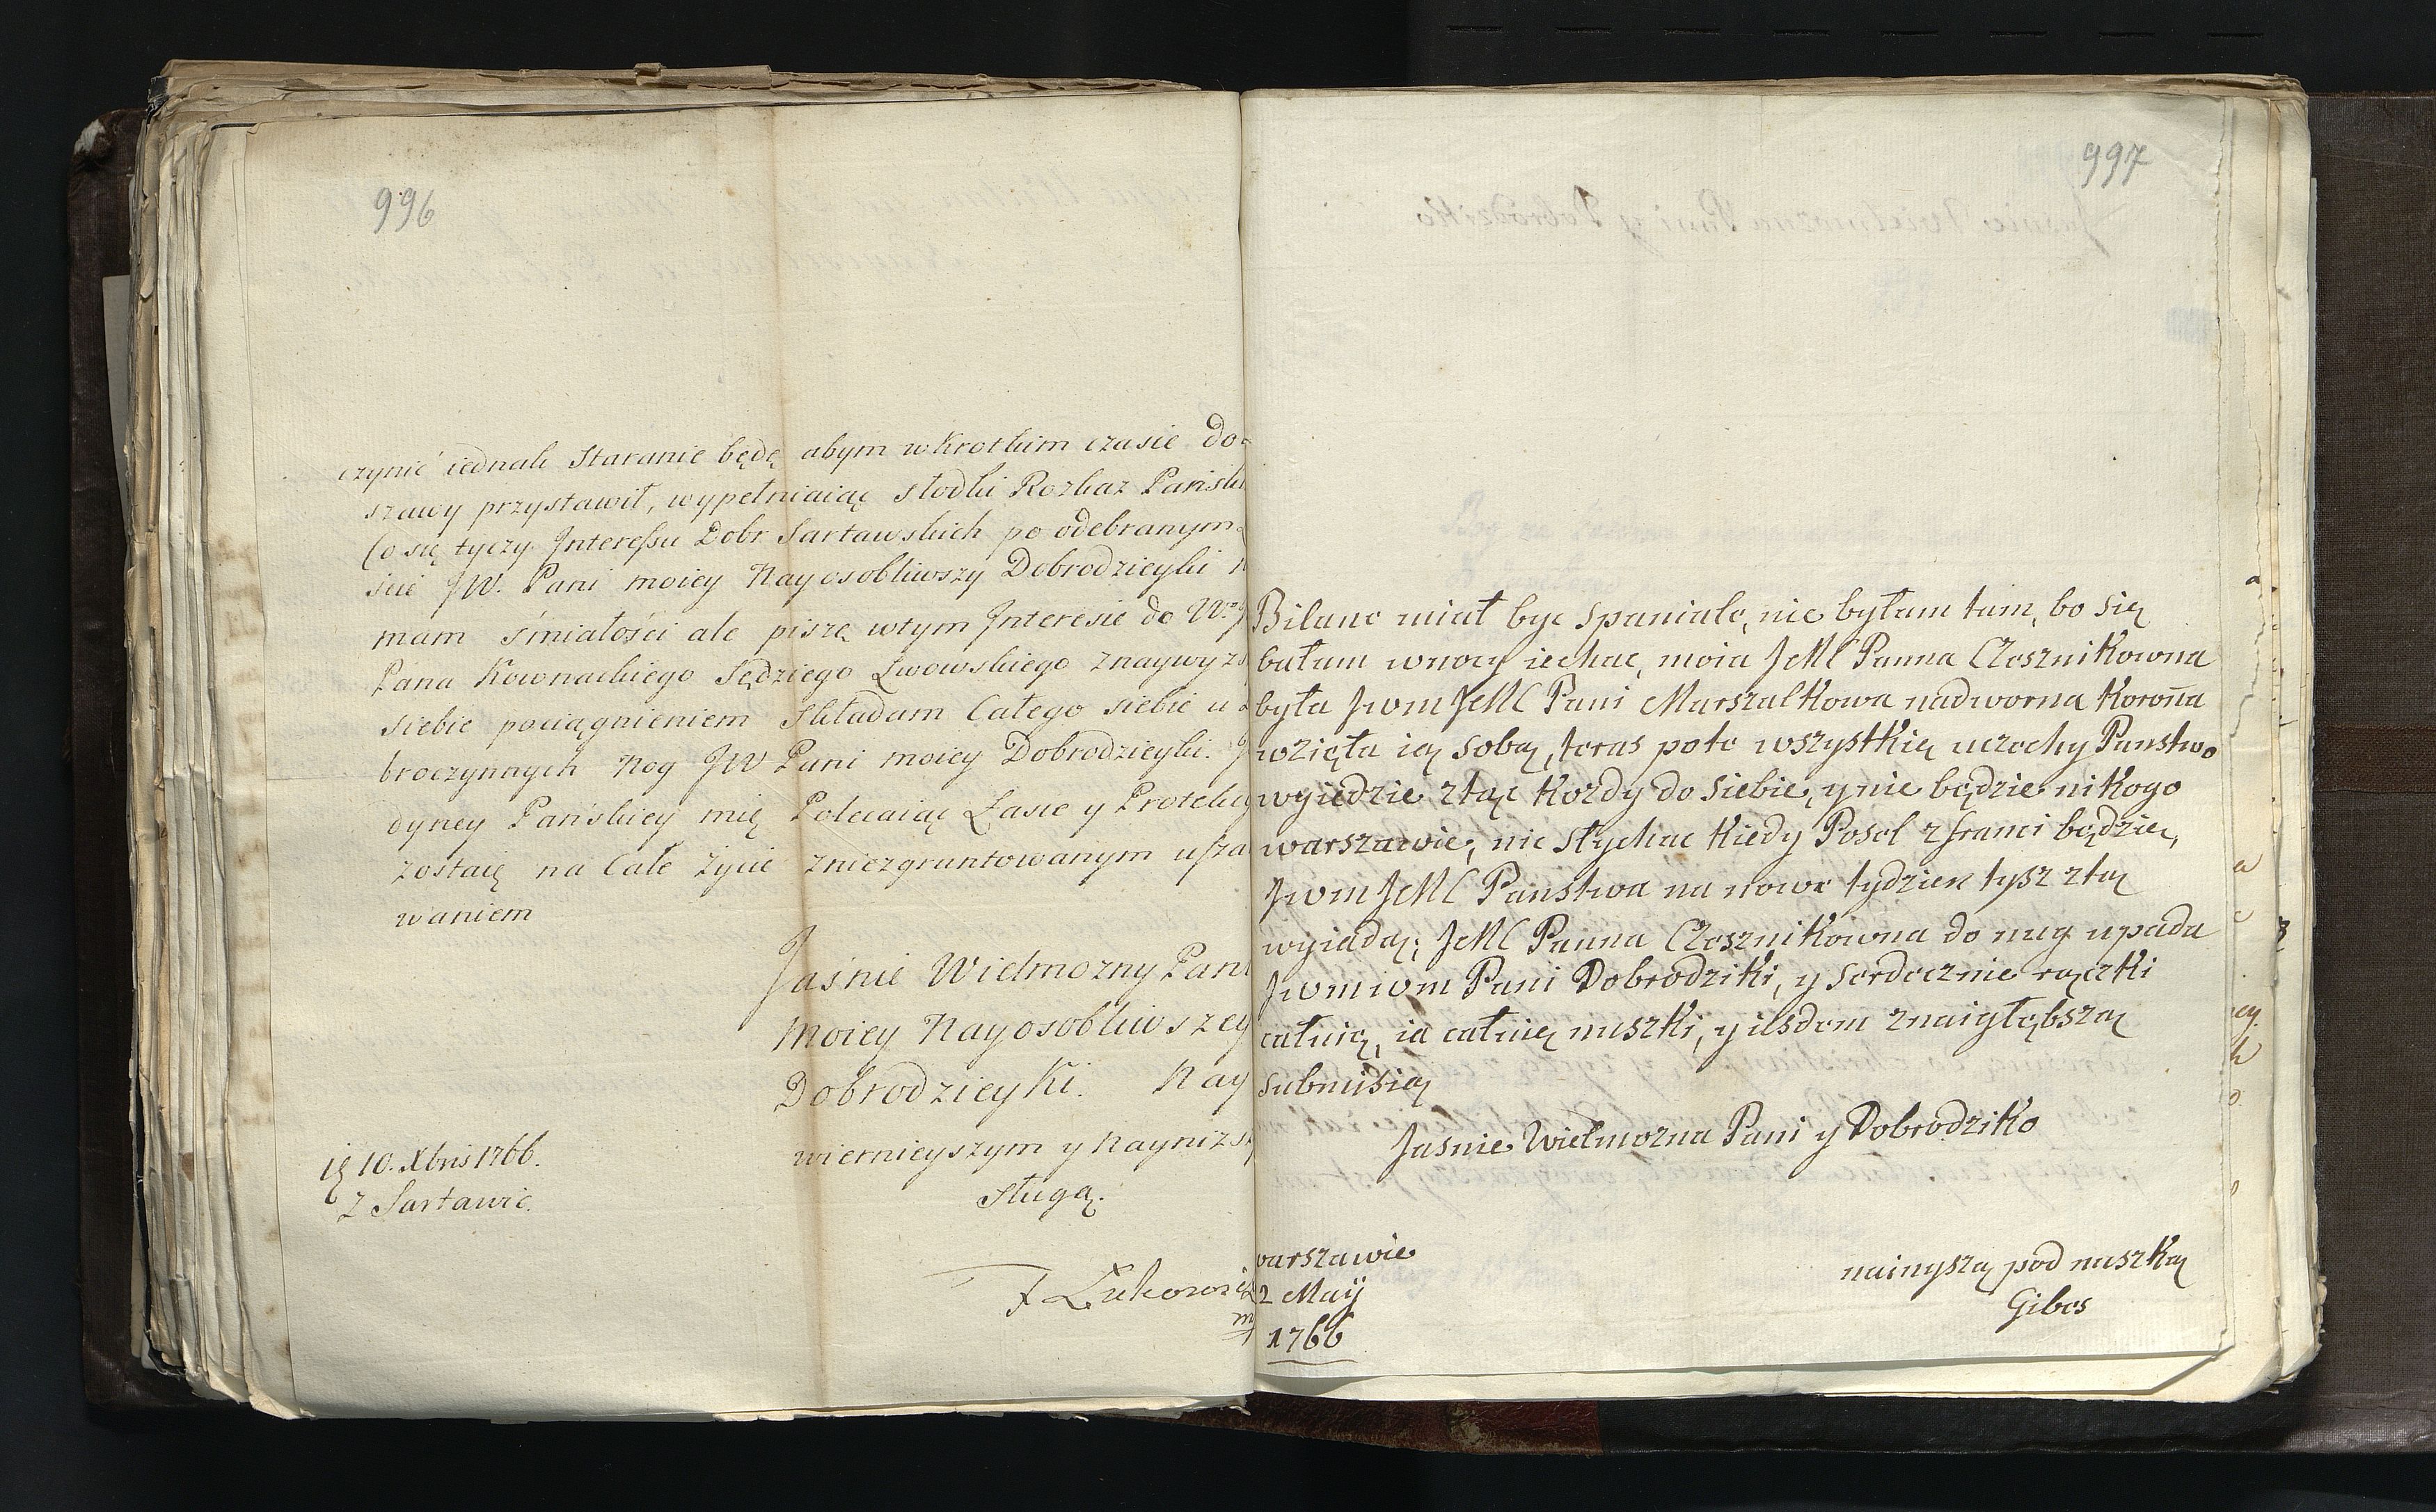 996
czynić iednak Staranie będę abym w Krotkim czasie do
szawy przystawił, wypełniaiąc słodki Rozkaz Pańsk
Co się tyczy Interessu Dobr Sartawskich po odebranym
sie JW. Pani moiey Nayosobliwszy Dobrodzieyki
mam śmiałości ale piszę wtym Interesie do W.
Pana Kownackiego Sędziego Lwowskiego znaywyzs
siebie pociągnieniem Składam Całego siebie u
broczynnych Nog JW Pani moiey Dobrodzieyki.
dyney Pańskiey mię Polecaiąc Łasce y Protekcy
zostaię na Całe życie zniezgruntowanym usza
waniem
Jaśnie Wielmozny Pani
Moiey Nayosobliwszey
Dobrodzieyki. Nay
wiernieyszym y Nayniżs
Sługą.
10. Xbris 1766.
z Sartawic.
F Łukowic
997
Bilanc miał byc spaniale, nie byłam tam, bo się
bałam wnocy iechac, moia JeMC Panna Czesznikowna
była Jwm JeMC Pani Marszalkowa nadworna Koronna
wzięła ią sobą, teras poto wszystkię uczochy Panstwo
wyiedzie ztąt Kozdy do siebie, y nie będzie nikogo
warszawie, nie słychac Kiedy Posol z franci będzie,
Jwm JeMC Panstwa na nowe tydzien tysz ztą
wyiadą; JeMC Panna Czesznikowna do nug upada
Jwmiwm Pani Dobrodziki, y serdecznie rączki
całuię, ia całuię nuszki, y iesdem znaigłębszą
submisią
Jasnie Wielmozna Pani y Dobrodziko
warszawie
2 Maÿ
1766
nainyszą pod nuszką
Gibes